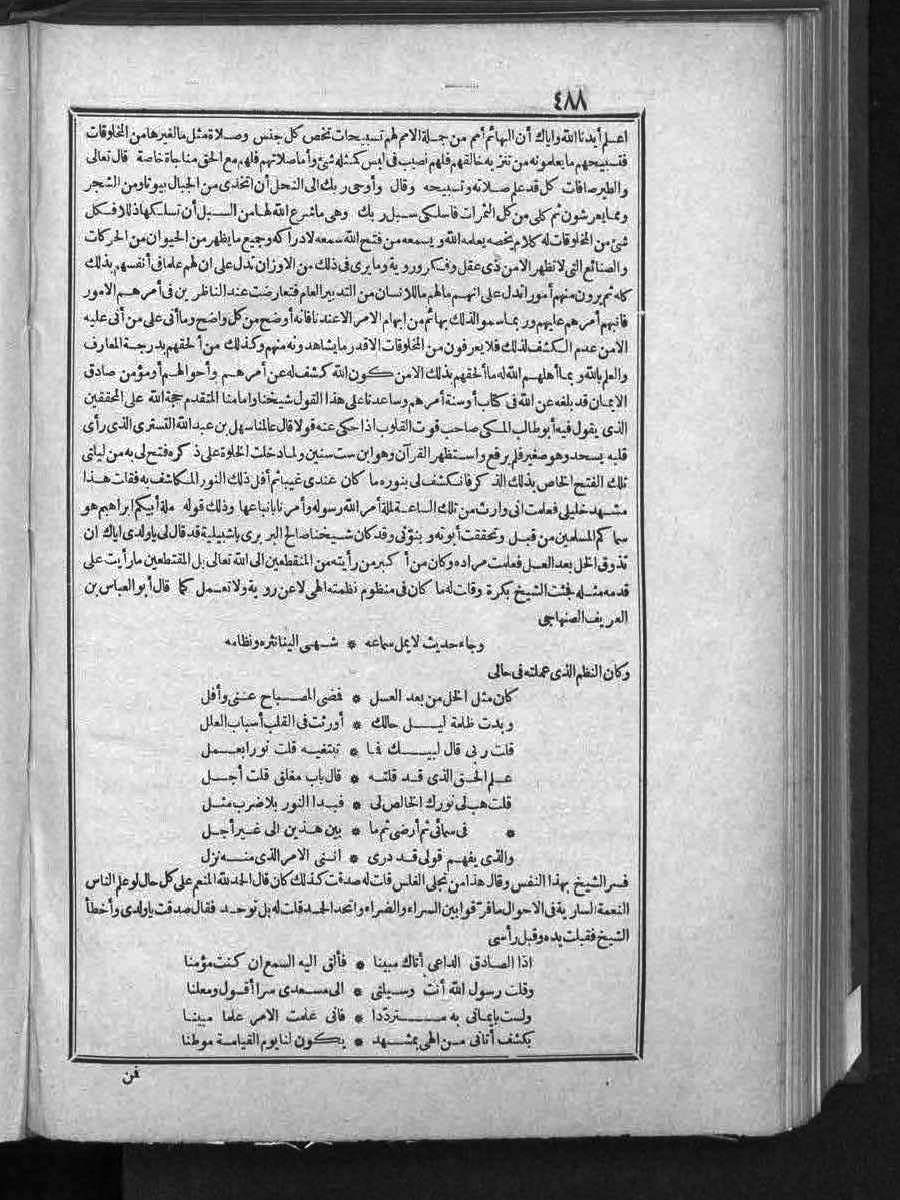 ٤٨٨
اعلم أيدنا الله واياك أن البهائم أمم من جلة الامم لهم تسبيحات تخص كل جنس وصلاة مثل ما لغيرها من المخلوقات
فتسبيحهم ما يعلمونه من تنزيه خالقهم فلهم نصيب فى ليس كمثله شئ وأما صلاتهم فلهم مع الحق مناجاة خاصة قال تعالى
والطير صافات كل قد علم صلاته وتسبيحه وقال وأوحى ربك الى النحل أن اتخذى من الجبال بيوتا ومن الشجر
ومما يعرشون ثم كلى من كل الثمرات فاسلكى سبل ربك وهى ما شرع الله لها من السبل أن تسلكها ذللا فكل
شئ من المخلوقات له كلام يخصه يعلمه الله ويسمعه من فتح الله سمعه لادراكه وجميع ما يظهر من الحيوان من الحركات
والصنائع التى لا تظهر الا من ذى عقل وفكر وروية وما يرى فى ذلك من الاوزان تدل على ان لهم علما فى أنفسهم بذلك
كله ثم يرون منهم أمورا تدل على انهم ما لهم ما للانسان من التدبير العام فتعارضت عند الناظرين فى أمرهم الامور
فانبهم أمرهم عليهم وربما سموا لذلك بهائم من ابهام الامر الا عندنا فانه أوضح من كل واضح وما أتى على من أتى عليه
الا من عدم الكشف لذلك فلا يعرفون من المخلوقات الا قدر ما يشاهدونه منهم وكذلك من ألحقهم بدرجة المعارف
والعلم بالله وبما أهلهم الله له ما ألحقهم بذلك الا من كون الله كشف له عن أمرهم وأحوالهم أو مؤمن صادق
الايمان قد بلغه عن الله فى كتاب أو سنة أمرهم وساعدنا على هذا القول شيخنا وامامنا المتقدم حجة الله على المحققين
الذى يقول فيه أبو طالب المكى صاحب قوت القلوب اذا حكى عنه قولا قال عالمنا سهل بن عبد الله التسترى الذى رأى
قلبه يسجد وهو صغير فلم يرفع واستظهر القرآن وهو ابن ست سنين ولما دخلت الخلوة على ذكره فتح لى به من ليلتى
تلك الفتح الخاص بذلك الذكر فانكشف لى بنوره ما كان عندى غيبا ثم أفل ذلك النور المكاشف به فقلت هذا
مشهد خليلى فعلمت انى وارث من تلك الساعة لملة أمر الله رسوله وأمرنا باتباعها وذلك قوله ملة أبيكم ابراهيم هو
سماكم المسلمين من قبل وتحققت أبوته وبنوّتى وقد كان شيخنا صالح البربرى باشبيلية قد قال لى ياولدى اياك ان
تذوق الخل بعد العسل فعلمت مراده وكان من أكبر من رأيته من المنقطعين الى الله تعالى بل المقتطعين ما رأيت على
قدمه مثله فجئت الشيخ بكرة وقلت له ما كان فى منظوم نظمته الهى لا عن روية ولا تعمل كما قال أبو العباس بن
العريف الصنهاجى
وجاء حديث لا يمل سماعه * شهى الينا نثره ونظامه
وكان النظم الذى عملته فى حالى
كان مثل الخل من بعد العسل * فضى المصباح عنى وأفل
وبدت ظلمة ليل حالك * أورثت فى القلب أسباب العلل
قلت ربى قال لبيك فما * تبتغيه قلت نورا بعمل
علم الحق الذى قد قلته * قال باب مغلق قلت أجل
قلت هب لى نورك الخالص لى * فبدا النور بلا ضرب مثل
* فى سمائى ثم أرضى ثم ما * بين هذين الى غير أجل
والذى يفهم قولى قد درى * اننى الامر الذى منه نزل
فسر الشيخ بهذا النفس وقال هذا من تجلى الغلس قلت له صدقت كذلك كان قال الحد لله المنعم على كل حال لو علم الناس
النعمة السارية فى الاحوال ما فرّقوا بين السراء والضراء واتحد الحمد قلت له بل توحد فقال صدقت ياولدى وأخطأ
الشيخ فقبلت يده وقبل رأسى
اذا الصادق الداعى أتاك مبينا * فألق اليه السمع ان كنت مؤمنا
وقلت رسول الله أنت وسيلتى * الى مسعدى سرا أقول ومعلنا
ولست بايمانى به مترددا * فانى علمت الامر علما مبينا
بكشف أتانى من الهى بمشهد * يكون لنا يوم القيامة موطنا
فن